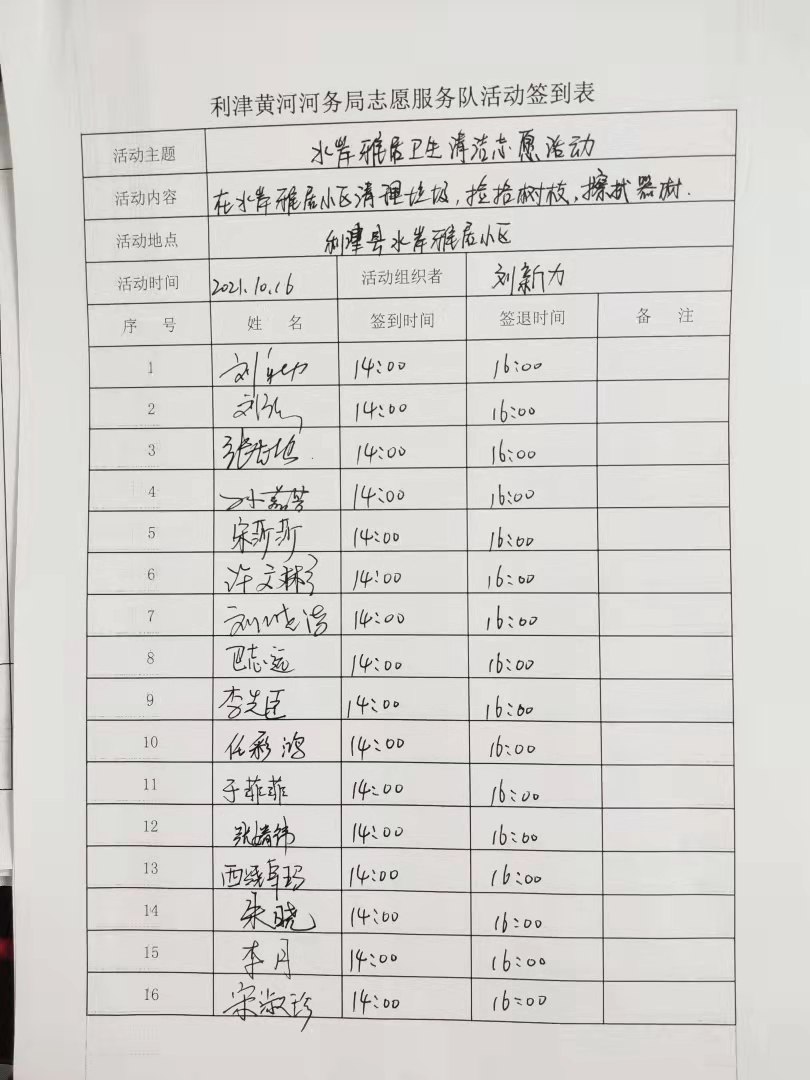 利津黄河河务局志愿服务队活动签到表
活动主题 水岸雅居卫生清洁志愿活动
活动内容 在水岸雅居小区清理垃圾,捡拾树枝,擦拭器材.
活动地点 利津县水岸雅居小区
活动时间 2021.10.16 活动组织者 刘新力
序 号 姓 名 签到时间 签退时间 备 注
1 刘新力 14:00 16:00
2 14:00 16:00
3 14:00 16:00
4 14:00 16:00
5 宋莎莎 14:00 16:00
6 许文彬 14:00 16:00
7 刘晓浩 14:00 16:00
8 巴志远 14:00 16:00
9 李先臣 14:00 16:00
10 任彩鸿 14:00 16:00
11 于菲菲 14:00 16:00
12 14:00 16:00
13 西绕卓玛 14:00 16:00
14 朱晓 14:00 16:00
15 李月 14:00 16:00
16 宋淑珍 14:00 16:00